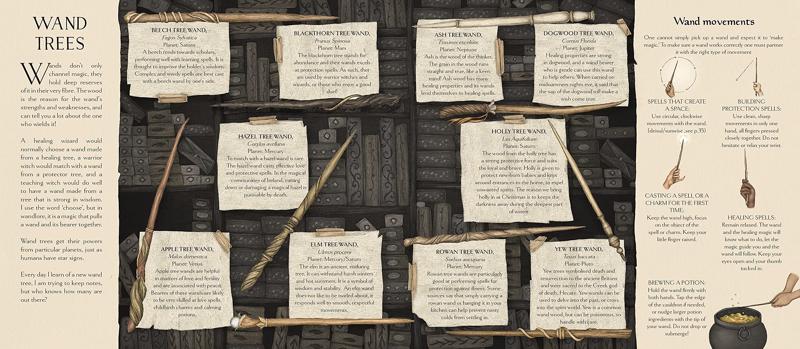 WAND
TREES
Wands don't only
channel magic, they
hold deep reserves
of it in their very fibre. The wood
is the reason for the wand's
strengths and weaknesses, and
can tell you a lot about the one
who wields it!
A healing wizard would
normally choose a wand made
from a healing tree, a warrior
witch would match with a wand
from a protector tree, and a
teaching witch would do well
to have a wand made from a
tree that is strong in wisdom.
I use the word 'choose', but in
wandlore, it is a magic that pulls
a wand and its bearer together.
Wand trees get their powers
from particular planets, just as
humans have star signs.
Every day I learn of a new wand
tree, I am trying to keep notes,
but who knows how many are
out there?
BEECH TREE WAND,
Fagus Sylvatica
Planet: Saturn
A beech tends towards scholars,
performing well with learning spells. It is
thought to improve the holder's wisdom.
Complex and wordy spells are best cast
with a beech wand by one's side.
BLACKTHORN TREE WAND,
Prunus Spinosa
Planet: Mars
The blackthorn tree stands for
abundance and their wands excels
at protection spells. As such, they
are used by warrior witches and
wizards, or those who meet a good
duel!
ASH TREE WAND,
Fraxinus excelsior
Planet: Neptune
Ash is the wood of the thinker.
The grain in the wood runs
straight and true, like a keen
mind! Ash wood has many
healing properties and its wands
lend themselves to healing spells.
DOGWOOD TREE WAND,
Cornus Florida
Planet: Jupiter
Healing properties are strong
in dogwood, and a wand bearer
who is gentle can use this wand
to help others. When carried on
midsummers night eve, it said that
the sap of the dogwood will make a
wish come true.
HAZEL TREE WAND,
Corylus avellana
Planet: Mercury
To match with a hazel wand is rare.
The hazel wand casts effective love
and protection spells. In the magical
communities of Ireland, cutting
down or damaging a magical hazel is
punishable by death.
HOLLY TREE WAND,
Lex Aquifolium
Planet: Saturn
The wood from the holly tree has
a strong protective force and suits
the loyal and brave. Holly is given to
protect newborn babies and kept
around entrances in the home, to repel
unwanted spirits. The reason we bring
holly in at Christmas is to keep the
darkness away during the deepest part
of winter.
APPLE TREE WAND,
Malus domestica
Planet: Venus
Apple tree wands are helpful
in matters of love and fertility
and are associated with peace.
Bearers of these wands are likely
to be very skilled at love spells,
childbirth charms and calming
potions.
ELM TREE WAND,
Ulmus procera
Planet: Mercury/Saturn
The elm is an ancient, enduring
tree. It can withstand harsh winters
and hot summers. It is a symbol of
wisdom and stability. An elm wand
does not like to be waved about, it
responds well to smooth, respectful
movements.
ROWAN TREE WAND,
Sorbus aucuparia
Planet: Mercury
Rowan tree wands are particularly
good at performing spells for
protection against flames. Some
sources say that simply carrying a
rowan wand or hanging it in your
kitchen can help prevent nasty
colds from settling in.
YEW TREE WAND,
Taxus baccata
Planet: Pluto
Yew trees symbolised death and
resurrection to the ancient Britons
and were sacred to the Greek god
of death, Hecate. Yew wands can be
used to delve into the past, or cross
into the spirit world. Yew is a common
wand wood, but can be poisonous, so
handle with care.
Wand movements
One cannot simply pick up a wand and expect it to 'make
magic.' To make sure a wand works correctly one must partner
it with the right movement.
SPELLS THAT CREATE
A SPACE:
Use circular, clockwise
movements with the wand.
(deisul/sunwise see p.35)
BUILDING
PROTECTION SPELLS:
Use clean, sharp
movements in only one
hand, all fingers pressed
closely together. Do not
hesitate or relax your wrist.
CASTING A SPELL OR A
CHARM FOR THE FIRST
TIME:
Keep the wand high, focus
on the object of the
spell or charm. Keep your
little finger raised.
HEALING SPELLS:
Remain relaxed. The wand
and the healing magic will
know what to do, let the
magic guide you and the
wand will follow. Keep your
eyes open and your thumb
tucked in.
BREWING A POTION:
Hold the wand firmly with
both hands. Tap the edge
of the cauldron if needed,
or nudge larger potion
ingredients with the tip of
your wand. Do not drop or
submerge!